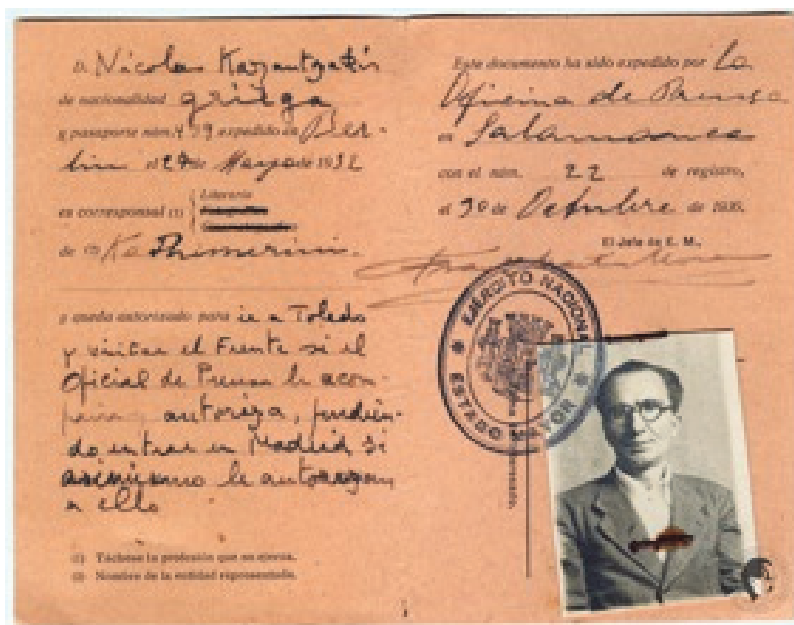 a Nicolas Kazantzakis
de nacionalidad griega
y pasaporte núm. 499 expedido en Ber-
lin el 24 de Mayo de 1932
es corresponsal (1) Literario
de (2) Kathimerini.
y queda autorizado para ir a Toledo
y visitar el Frente si el
Oficial de Prensa le acom-
paña y autoriza, pudién-
do entrar en Madrid si
asimismo le autorizan
a ello
(1) Táchese la profesión que no ejerza.
(2) Nombre de la entidad representada.
Este documento ha sido expedido por la
Oficina de Prensa
en Salamanca
con el núm. 22 de registro,
el 30 de Octubre de 1936.
El Jefe de E. M.,
EJÉRCITO NACIONAL
ESTADO MAYOR